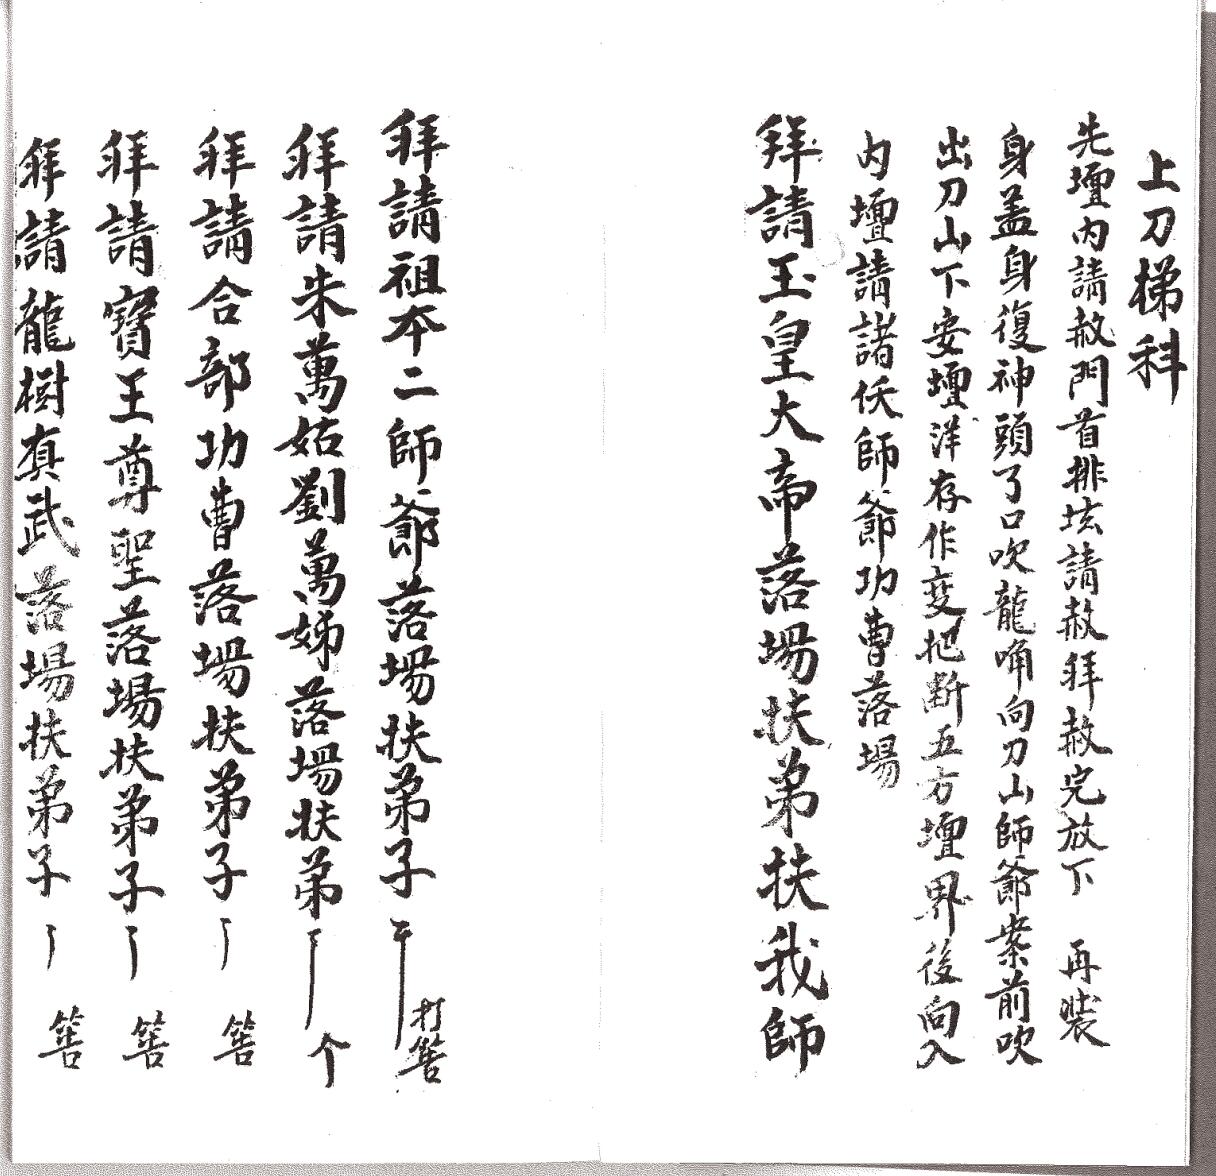 上刀梯科
先壇内請赦門首排坛請赦拜赦完放下　再装
身盖身復神頭了口吹龍喃向刀山師爺案前吹
出刀山下安壇洋存作変把断五方壇界後向入
内壇請諸伕師爺功曹落場
拜請玉皇大帝落場扶弟扶我師
拜請祖本二師爺落場扶弟子　打筶
拜請朱萬姑劉萬姊落場扶弟　个
拜請合部功曹落場扶弟子　筶
拜請寳王尊聖落場扶弟子　筶
拜請龍樹真武落場扶弟子　筶